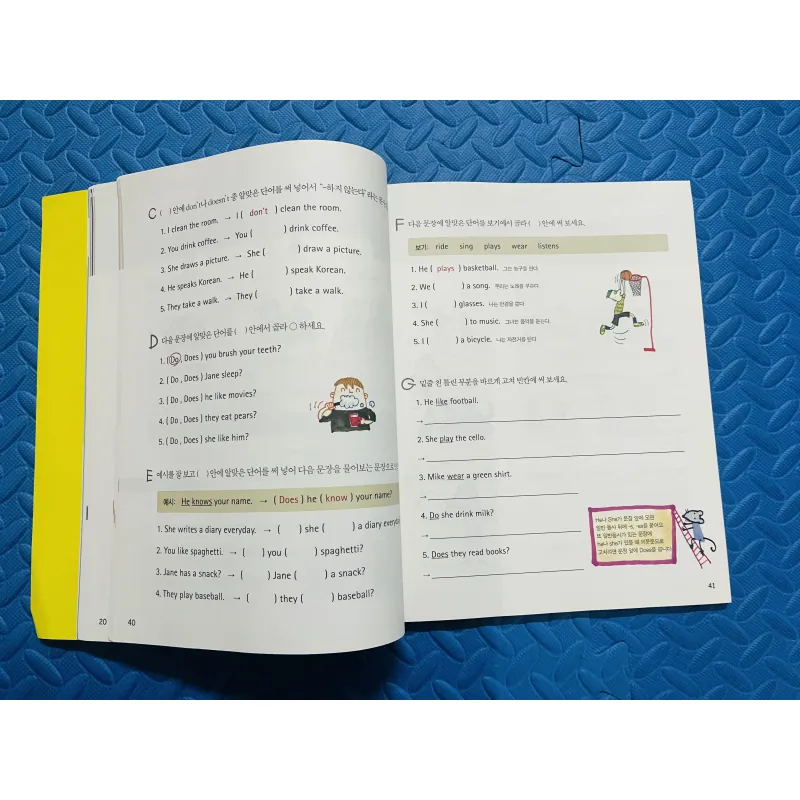 C ( )안에 don't나 doesn't 중 알맞은 단어를 써 넣어서 "~하지 않는다"
1. I clean the room. → I ( don't ) clean the room.
2. You drink coffee. → You ( ) drink coffee.
3. She draws a picture. → She ( ) draw a picture.
4. He speaks Korean. → He ( ) speak Korean.
5. They take a walk. → They ( ) take a walk.
D 다음 문장에 알맞은 단어를 ( )안에서 골라 ○ 하세요.
1. ( Do , Does ) you brush your teeth?
2. ( Do , Does ) Jane sleep?
3. ( Do , Does ) he like movies?
4. ( Do , Does ) they eat pears?
5. ( Do , Does ) she like him?
E 예시를 잘 보고 ( )안에 알맞은 단어를 써 넣어 다음 문장을 물어보는 문장으로
예시: He knows your name. → ( Does ) he ( know ) your name?
1. She writes a diary everyday. → ( ) she ( ) a diary
2. You like spaghetti. → ( ) you ( ) spaghetti?
3. Jane has a snack? → ( ) Jane ( ) a snack?
4. They play baseball. → ( ) they ( ) baseball?
20
40
F 다음 문장에 알맞은 단어를 보기에서 골라 ( )안에 써 보세요.
보기: ride sing plays wear listens
1. He ( plays ) basketball. 그는 농구를 한다.
2. We ( ) a song. 우리는 노래를 부른다.
3. I ( ) glasses. 나는 안경을 쓴다.
4. She ( ) to music. 그녀는 음악을 듣는다.
5. I ( ) a bicycle. 나는 자전거를 탄다.
G 밑줄 친 틀린 부분을 바르게 고쳐 빈칸에 써 보세요.
1. He like football.
→
2. She play the cello.
→
3. Mike wear a green shirt.
→
4. Do she drink milk?
→
5. Does they read books?
→
He나 She가 문장 앞에 오면
일반 동사 뒤에 -s, -es를 붙여요.
또 일반동사가 있는 문장에
He나 she가 있을 때 의문문으로
고치려면 문장 앞에 Does를 씁니다.
41